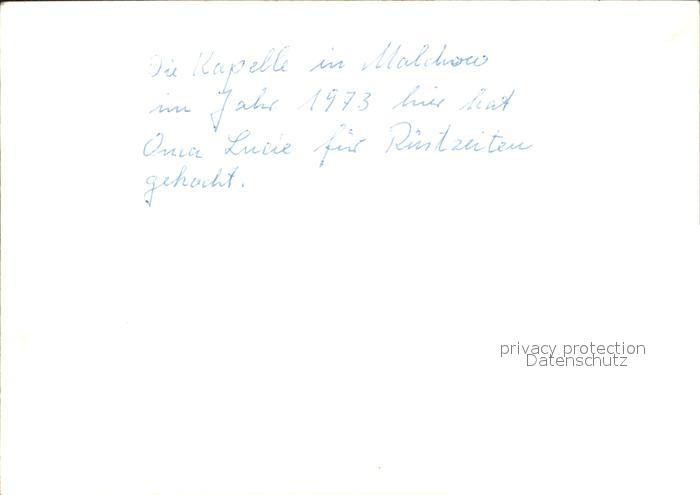 Die Kapelle in Malchow
im Jahr 1973 hier hat
Oma Lucie für Rüstzeiten
gekocht.
privacy protection
Datenschutz